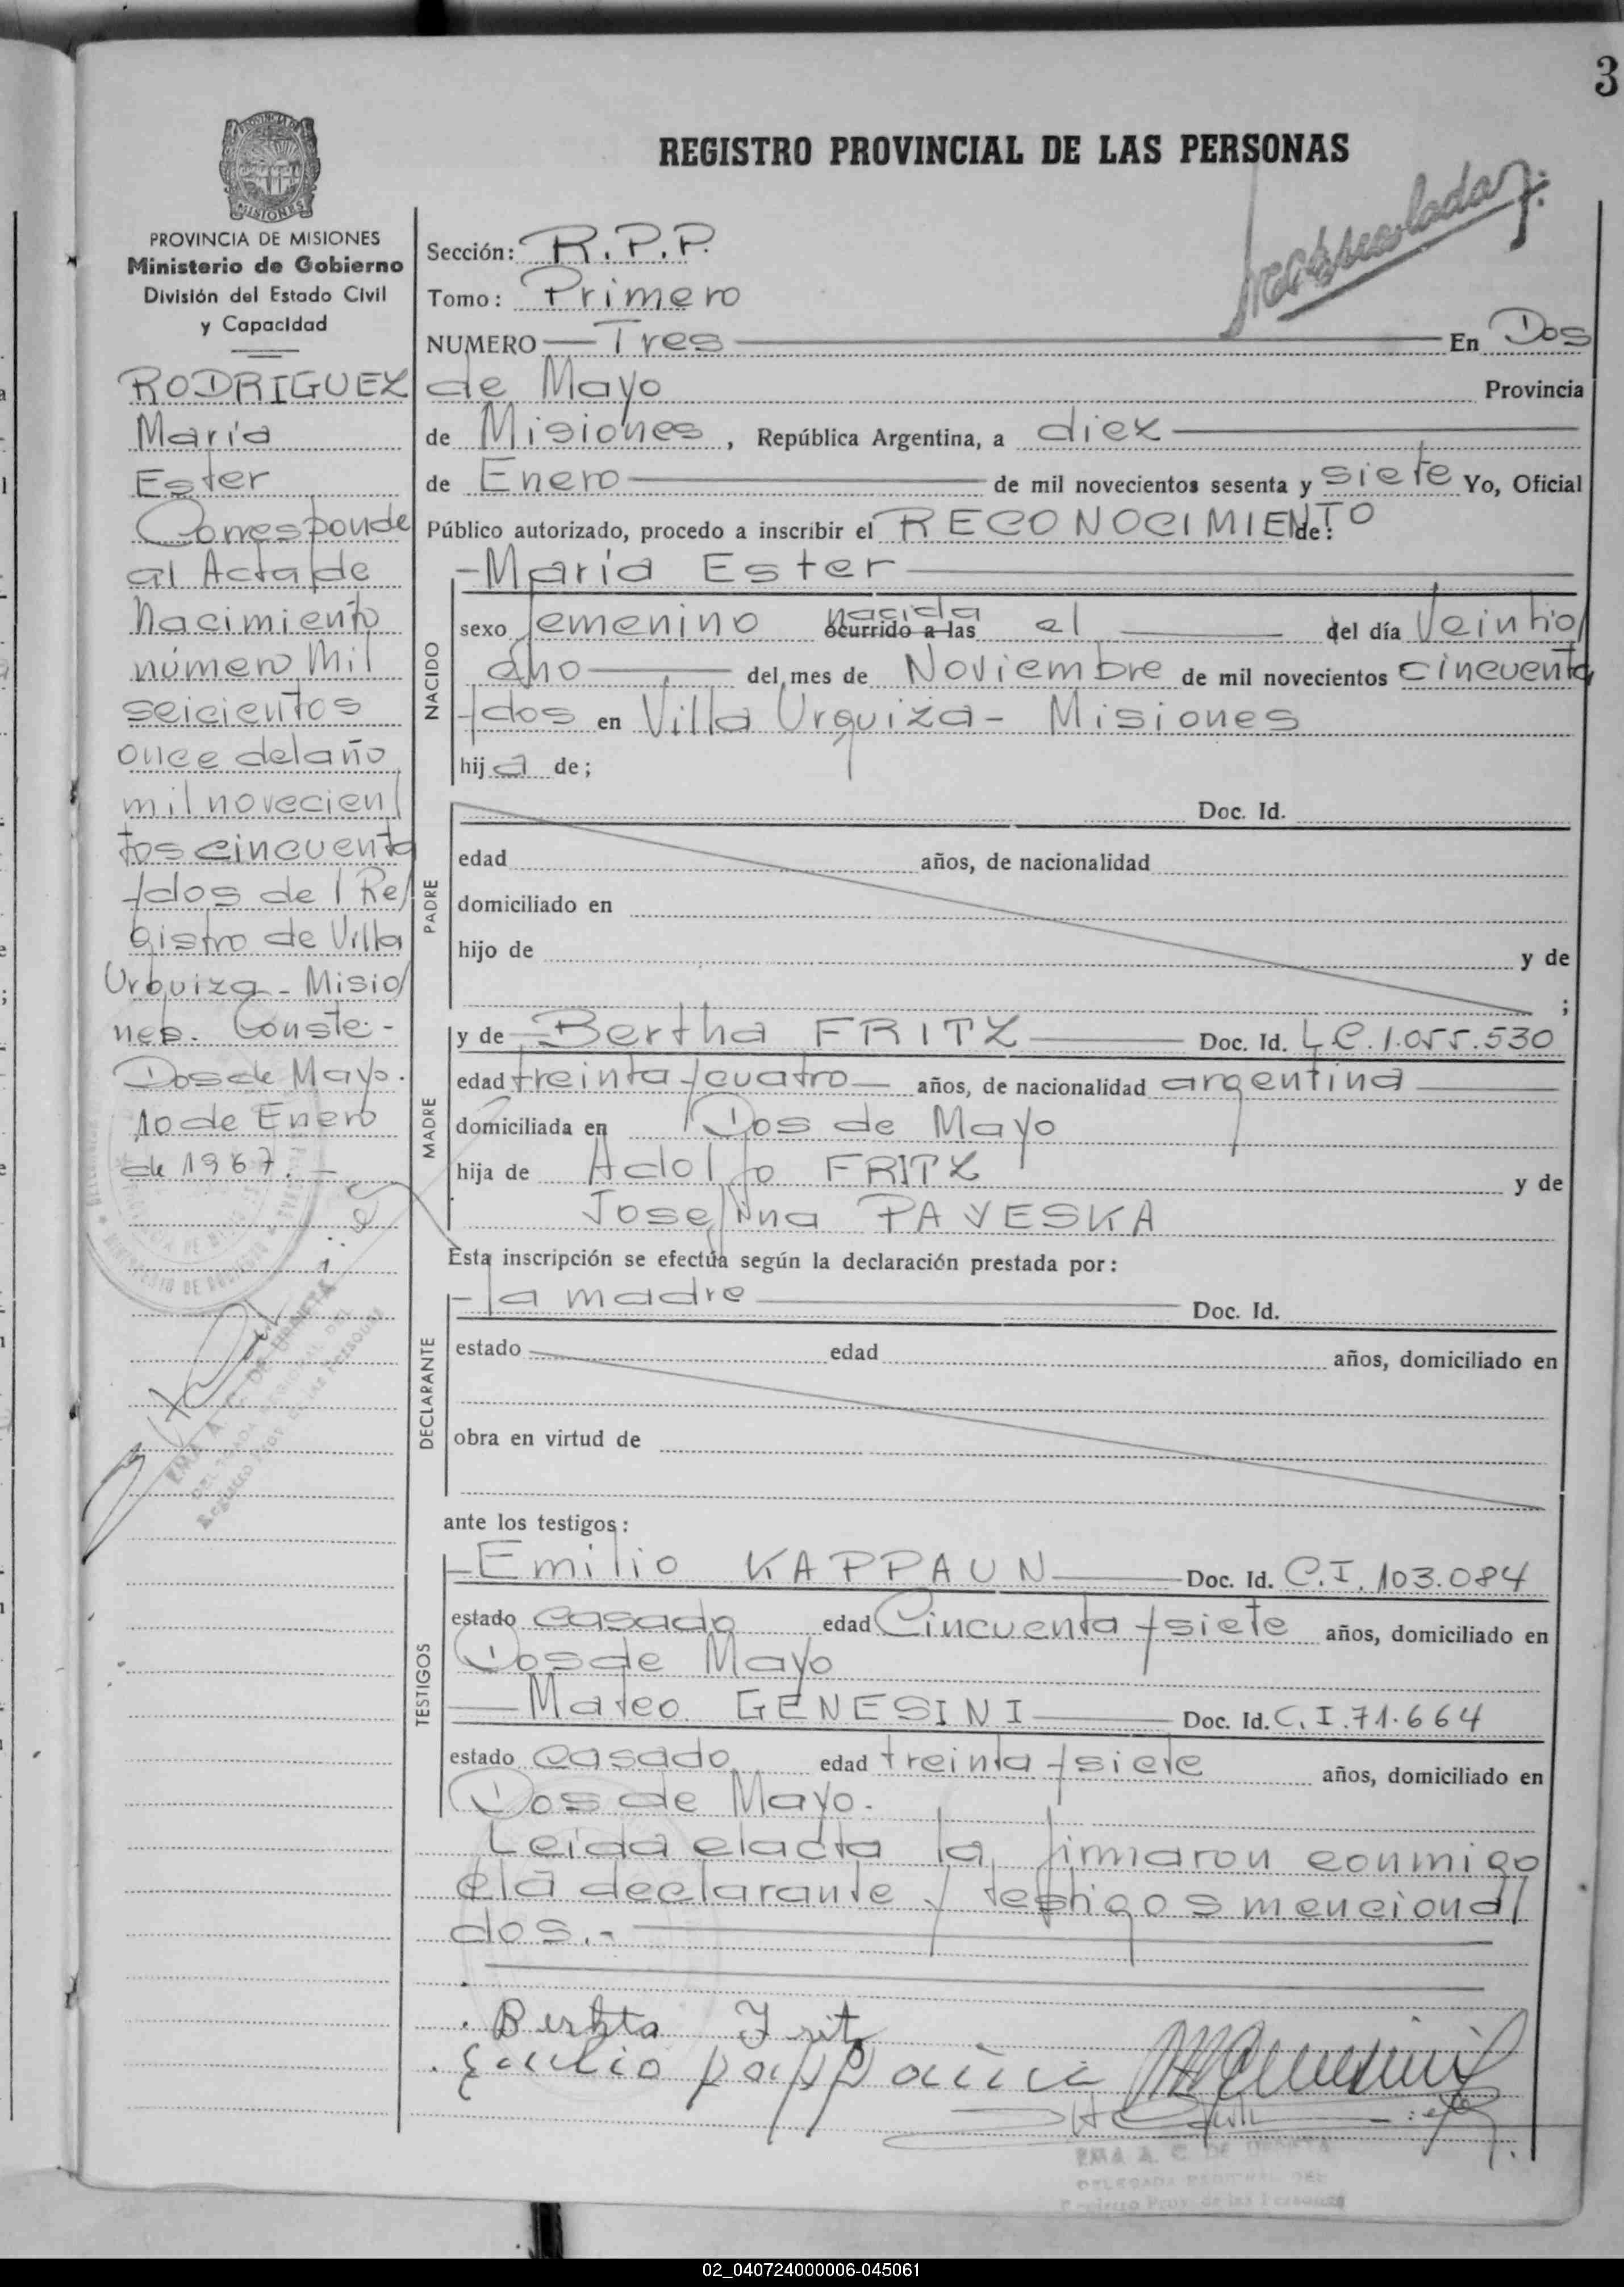 3
REGISTRO PROVINCIAL DE LAS PERSONAS
MISIONES
PROVINCIA DE MISIONES
Ministerio de Gobierno
División del Estado Civil
y Capacidad
RODRIGUEZ
María
Ester
Corresponde
al Acta de
Nacimiento
número Mil
seicientos
once del año
mil novecien/
tos cincuenta
y dos del Re/
gistro de Villa
Urquiza - Misio/
nes. Conste.-
Dos de Mayo.
10 de Enero
de 1967.-
EMA A. C. DE URRETA
DELEGADA REGIONAL DEL
Registro Prov. de las Personas
Sección: R.P.P.
Tomo: Primero
NUMERO — Tres — En Dos
de Mayo Provincia
de Misiones, República Argentina, a diez
de Enero de mil novecientos sesenta y siete Yo, Oficial
Público autorizado, procedo a inscribir el RECONOCIMIENTO de:
-María Ester
NACIDO
sexo femenino nacida ocurrido a las el del día Veintio/
cho del mes de Noviembre de mil novecientos cincuenta
y dos en Villa Urquiza - Misiones
hija de;
PADRE
Doc. Id.
edad años, de nacionalidad
domiciliado en
hijo de y de
;
MADRE
y de Bertha FRITZ Doc. Id. L.C. 1.055.530
edad treinta y cuatro años, de nacionalidad argentina
domiciliada en Dos de Mayo
hija de Adolfo FRITZ y de
Josefina PAVESKA
Esta inscripción se efectúa según la declaración prestada por:
DECLARANTE
- la madre Doc. Id.
estado edad años, domiciliado en
obra en virtud de
ante los testigos:
TESTIGOS
- Emilio KAPPAUN Doc. Id. C.I. 103.084
estado Casado edad Cincuenta y siete años, domiciliado en
Dos de Mayo
Mateo GENESINI Doc. Id. C.I. 71.664
estado Casado edad treinta y siete años, domiciliado en
Dos de Mayo.
Leida el acta la firmaron conmigo
el a declarante y testigos menciona/
dos.-
Bertta Frit
EMA A. C. DE URRETA
DELEGADA REGIONAL DEL
Registro Prov. de las Personas
02_040724000006-045061